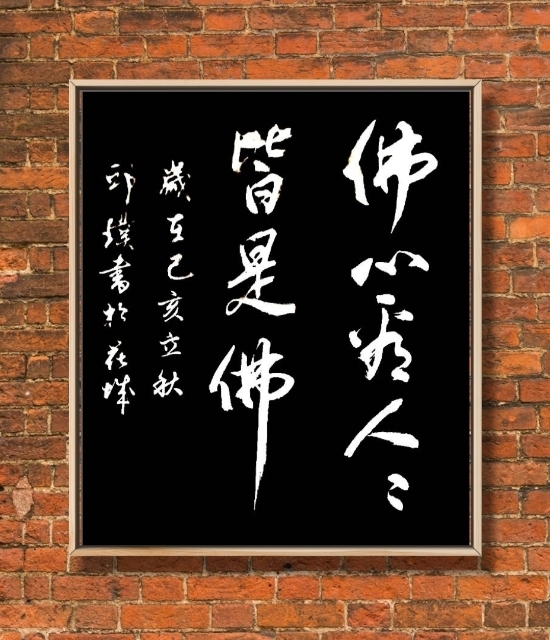 佛心看人〻
皆是佛
歲在己亥立秋
邱璞書於花城